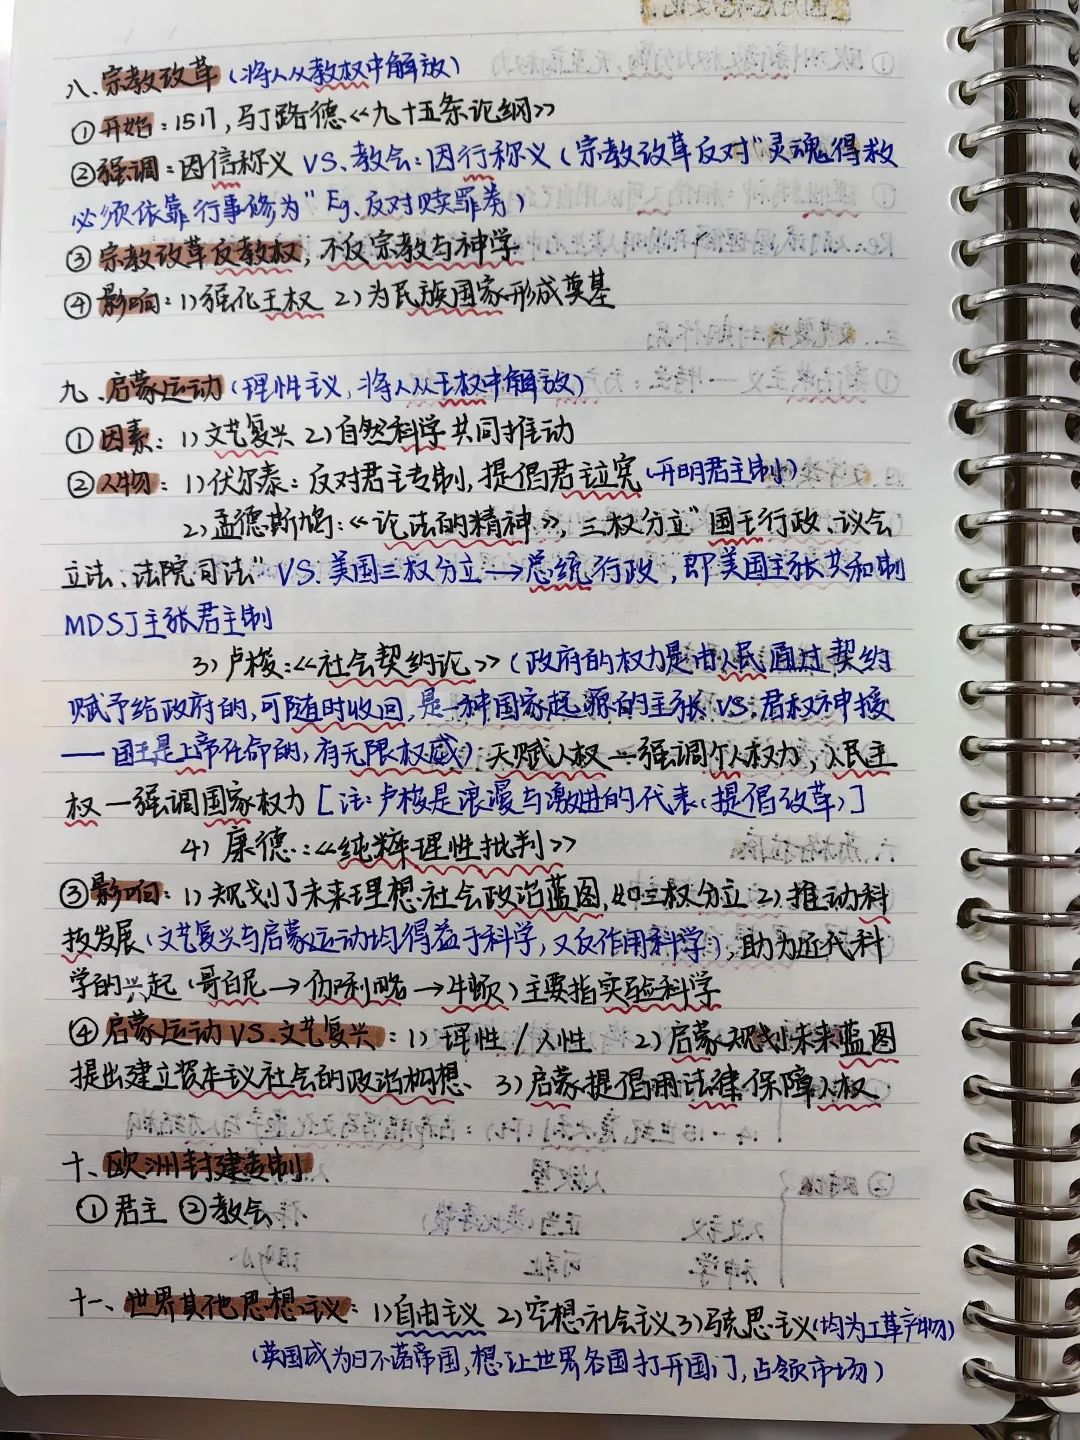 八、宗教改革（将人从教权中解放）
①开始：1517，马丁路德《九十五条论纲》
②强调：因信称义 VS. 教会：因行称义（宗教改革反对"灵魂得救
必须依靠行事修为" Eg. 反对赎罪券）
③宗教改革反教权，不反宗教与神学
④影响：1）强化王权 2）为民族国家形成奠基
九、启蒙运动（理性主义，将人从王权中解放）
①因素：1）文艺复兴 2）自然科学共同推动
②人物：1）伏尔泰：反对君主专制，提倡君主立宪（开明君主制）
2）孟德斯鸠：《论法的精神》，三权分立"国王行政、议会
立法、法院司法" VS. 美国三权分立→总统行政，即美国主张共和制
MDSJ主张君主制
3）卢梭：《社会契约论》（政府的权力是由人民通过契约
赋予给政府的，可随时收回，是一种国家起源的主张 VS. 君权神授
——国王是上帝任命的，有无限权威）；天赋人权—强调个人权力，人民主
权—强调国家权力［注：卢梭是浪漫与激进的代表（提倡改革）］
4）康德：《纯粹理性批判》
③影响：1）规划了未来理想社会政治蓝图，如三权分立 2）推动科
技发展（文艺复兴与启蒙运动均得益于科学，又反作用科学），助力近代科
学的兴起（哥白尼→伽利略→牛顿）主要指实验科学
④启蒙运动 VS. 文艺复兴：1）理性/人性 2）启蒙规划未来蓝图
提出建立资本主义社会的政治构想、3）启蒙提倡用法律保障人权
十、欧洲封建专制
①君主 ②教会
十一、世界其他思想主义：1）自由主义 2）空想社会主义 3）马克思主义（均为工革产物）
（英国成为日不落帝国，想让世界各国打开国门，占领市场）